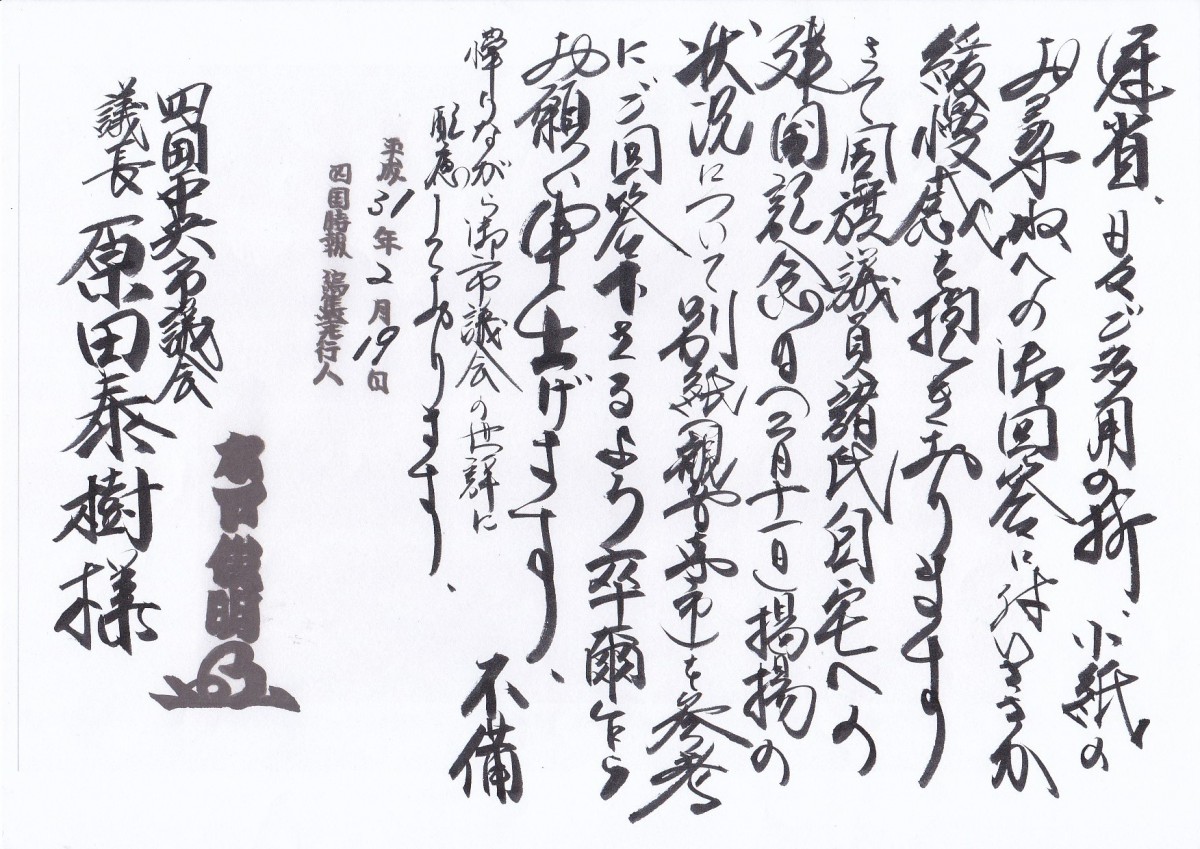 冠省、日々ご多用の折、小紙の
お尋ねへの御回答に付いささか
緩慢感を抱きおります
さて国旗議員諸氏自宅への
建国記念日(二月十一日)掲揚の
状況について別紙(観音寺市)を参考
にご回答下さるよう卒爾乍ら
お願い申し上げます、
不備
憚りながら御市議会の世評に
配慮しております、
平成31年2月19日
四国時報 編集発行人
俊明
四国中央市議会
議長 原田泰樹様